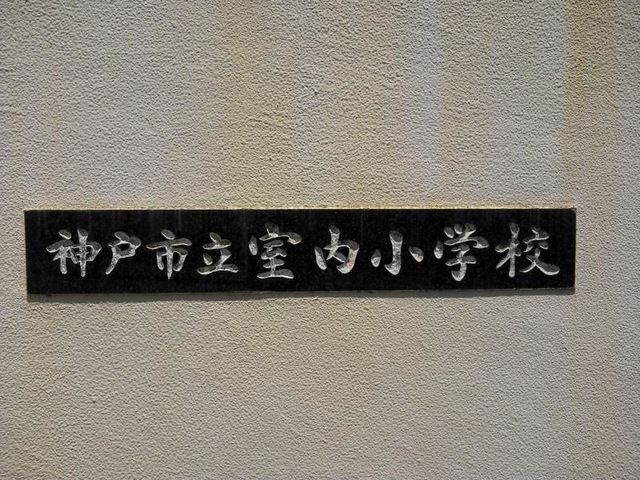 神戸市立室内小学校